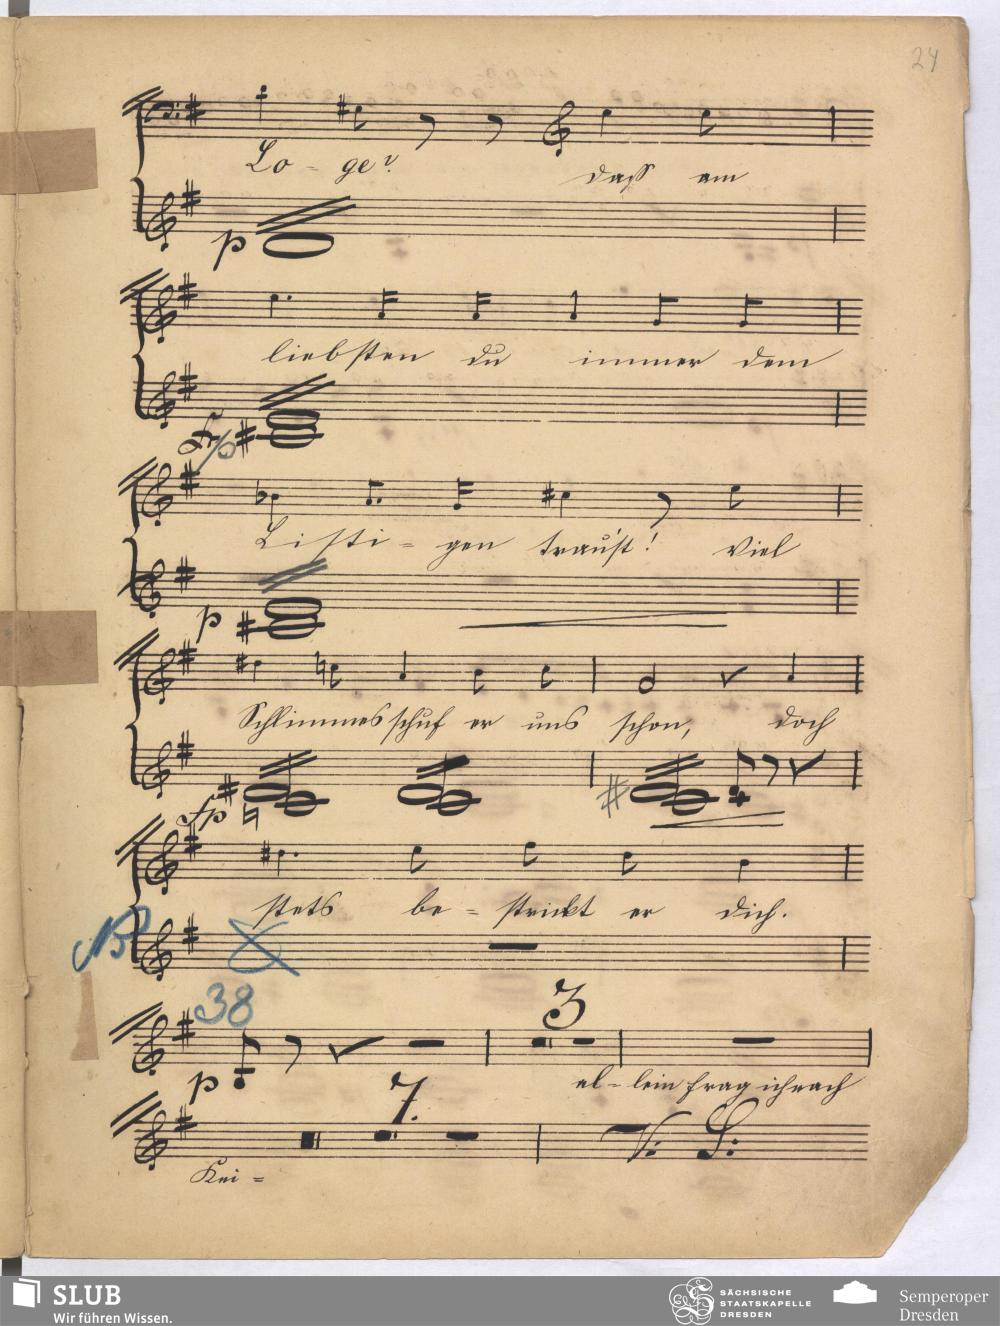 24
Lo - ge?
daß am
p
liebsten du immer dem
fp
Listi - gen trau'st! Viel
p
Schlimmes schuf er uns schon, doch
fp
stets be - strickt er dich.
NB
38
3
p
al - lein frag ich nach
7.
Kei -
V. S.
SLUB
Wir führen Wissen.
SÄCHSISCHE
STAATSKAPELLE
DRESDEN
Semperoper
Dresden